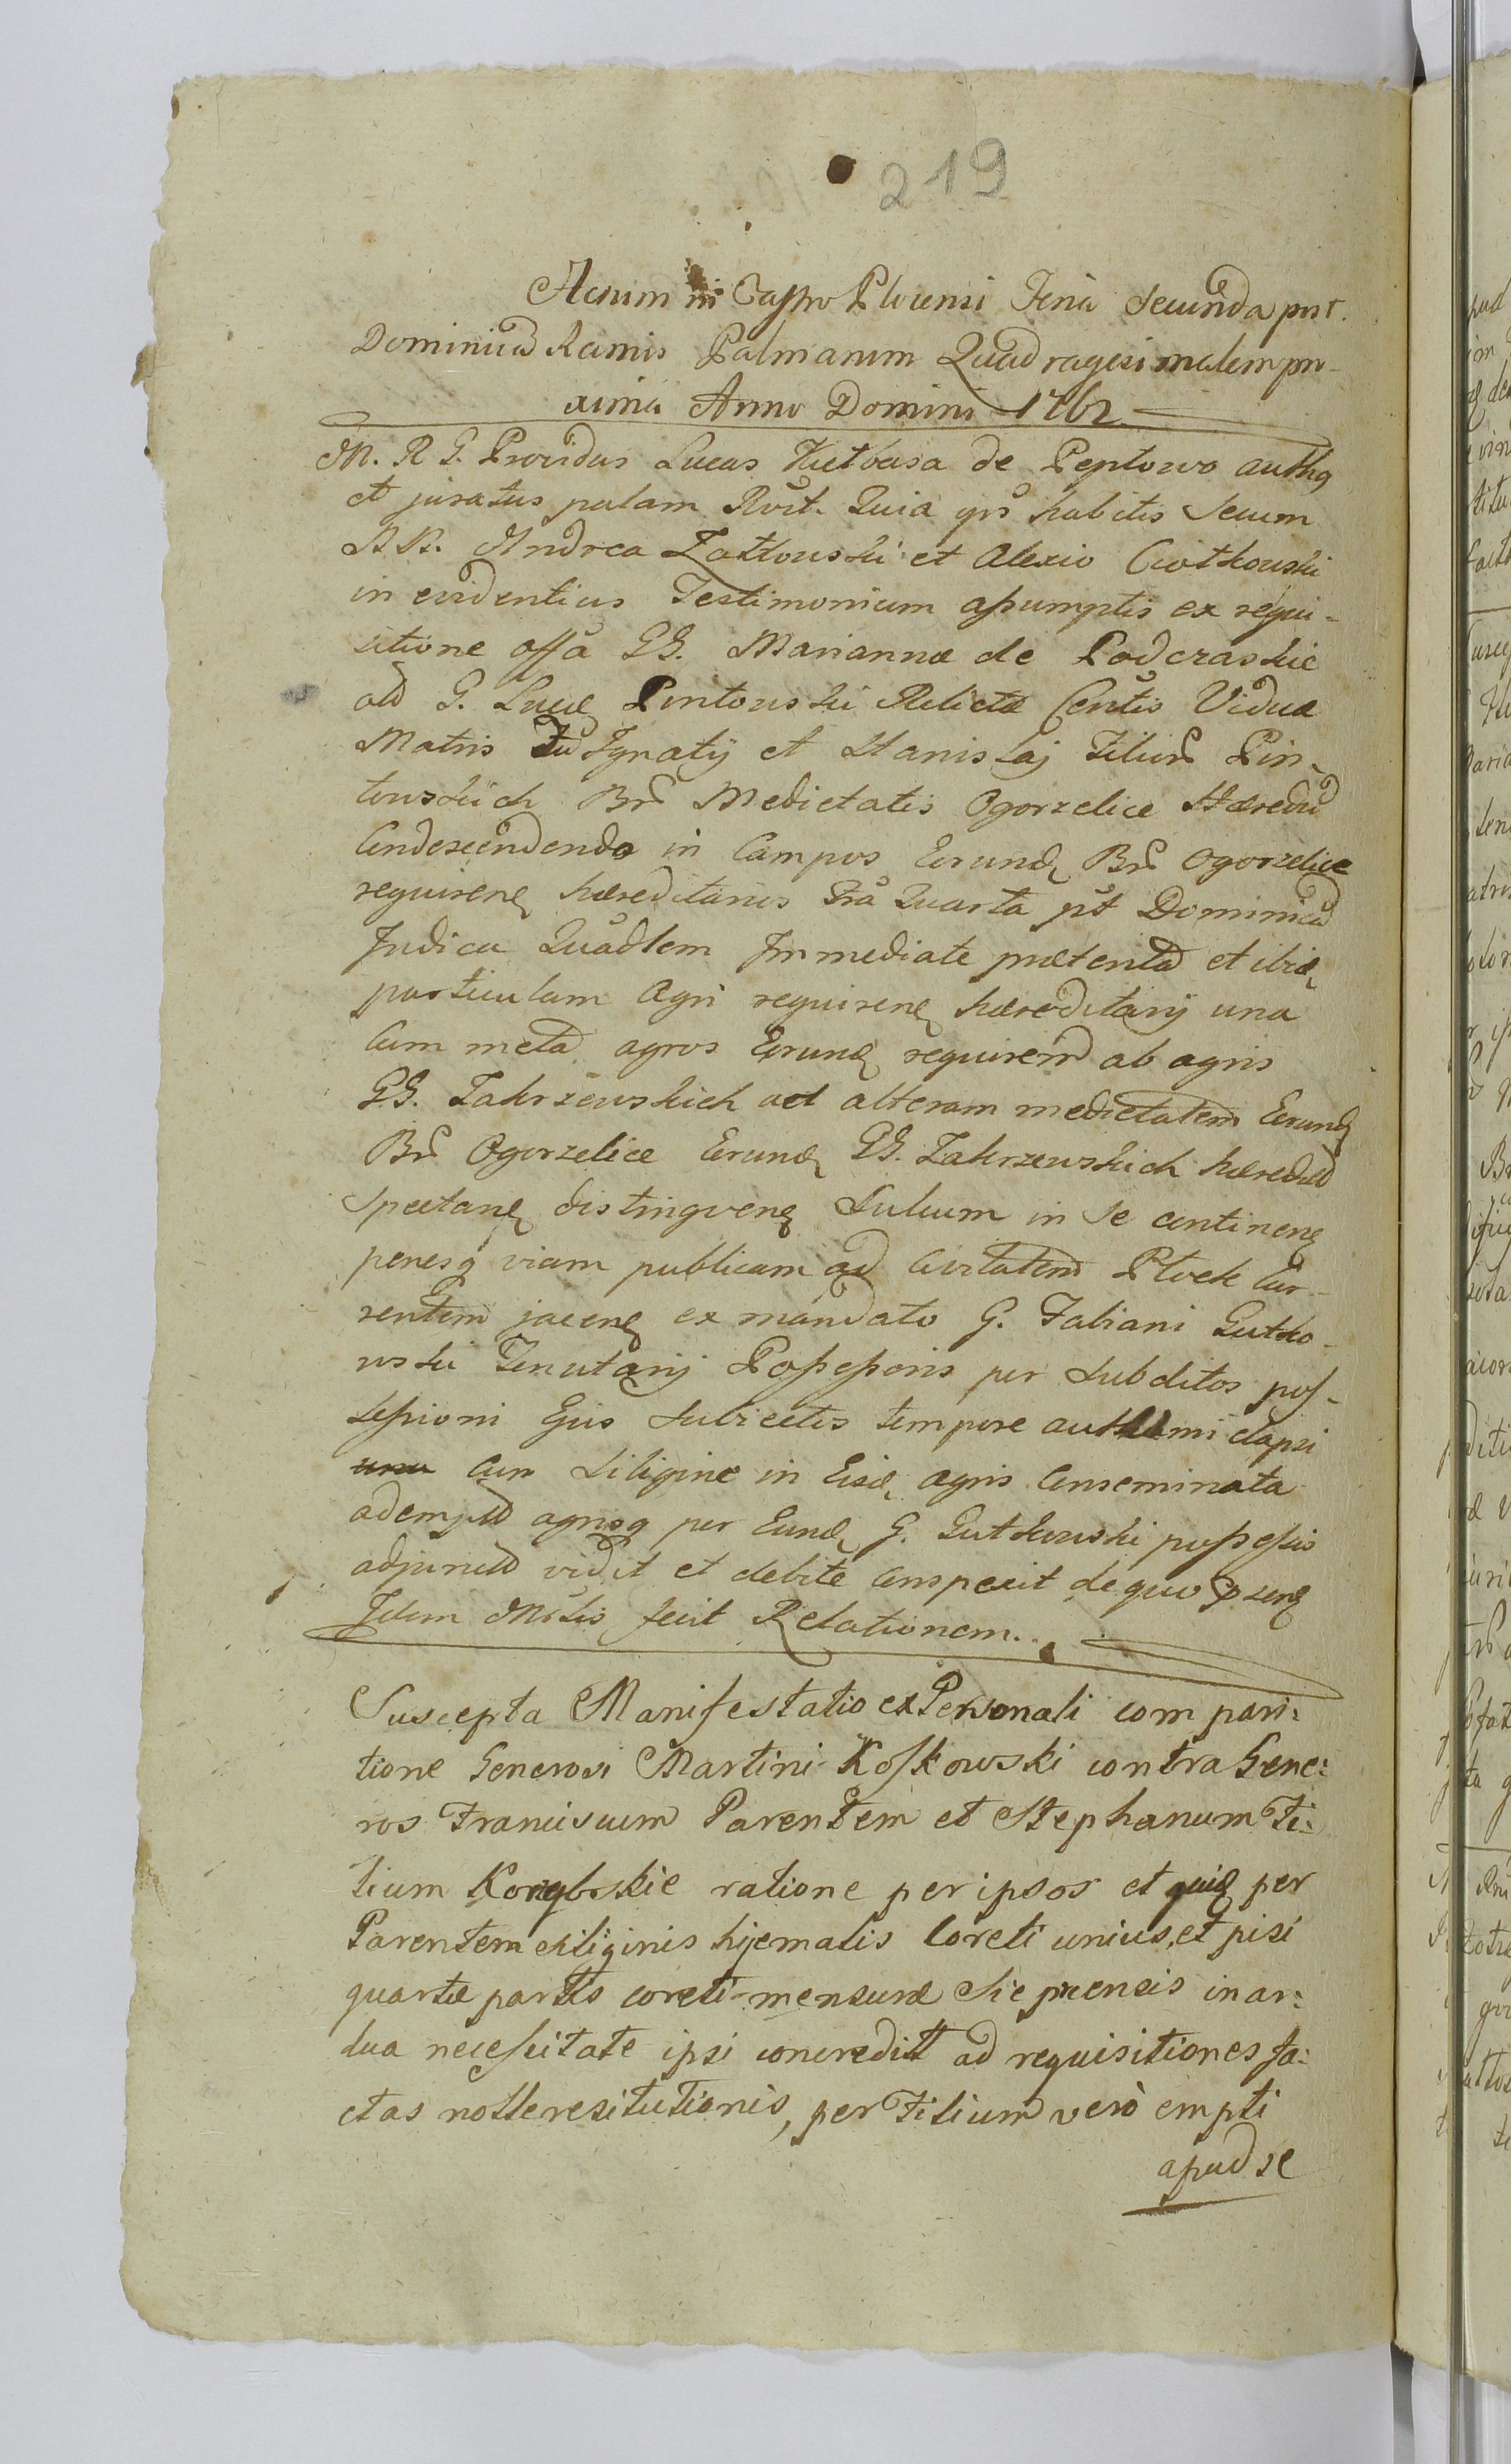 219
Actum in Castro Plocensi Feria Secunda post
Dominicā Ramis Palmarum Quadragesimalem pro-
xima Anno Domini 1762
M. R. G. Providus Lucas Kiełbasa de Peptowo authq
et juratus palam Rvit. Quia ips habitis Secum
NN. Andrea Zattowski et Alexio Cwotkowski
in evidentius Testimonium assumptis ex requi-
sitione offa GG. Mariannæ de Podczaskie
old G. Lucæ Pintowski Relictæ Contis Viduæ
Matris Tu Ignatij et Stanislaj Filior Pin-
towskich Br Medietatis Ogorzelice Hæredū
Condescendendo in Campos Eorund Br Ogorzelice
requiren hæreditarios Fra Quarta pt Dominicā
Judica Quadlem Immediate præteritā et ibid
particulam Agri requiren hæreditarij una
Cum metā agros Eorund requiren ab agris
GG. Zakrzewskich ad alteram medietatem Eorund
Br Ogorzelice Eorund GG. Zakrzewskich hæredū
Spectan distingven Sulcum in Se continen
penesq viam publicam ad Civitatem Płock Cur-
rentem jacen ex mandato G. Fabiani Gutko-
wski Tenutarij Possessoris per Subditos pos-
sessioni Ejus Subiectos tempore authumni elapsi
una cum Siligine in Eisd agris Conseminata
ademptā agrisq per Eund G. Gutkowski possessio
adjunctā vidit et debite Conspexit de quo psens
Idem Mrlis fecit Relationem.
Suscepta Manifestatio ex Personali compari:
tione Generosi Martini Koskowski contra Gene:
ros Franciscum Parentem et Stephanum Fi:
lium Korzybskie ratione per ipsos et quid per
Parentem siliginis hyemalis Coreti unius, et pisi
quartæ partis coreti mensuræ Sieprcensis in ar:
dua necessitate ipsi concredit ad requisitiones fa:
ctas nolle resitutionis, per Filium verò empti
apud se